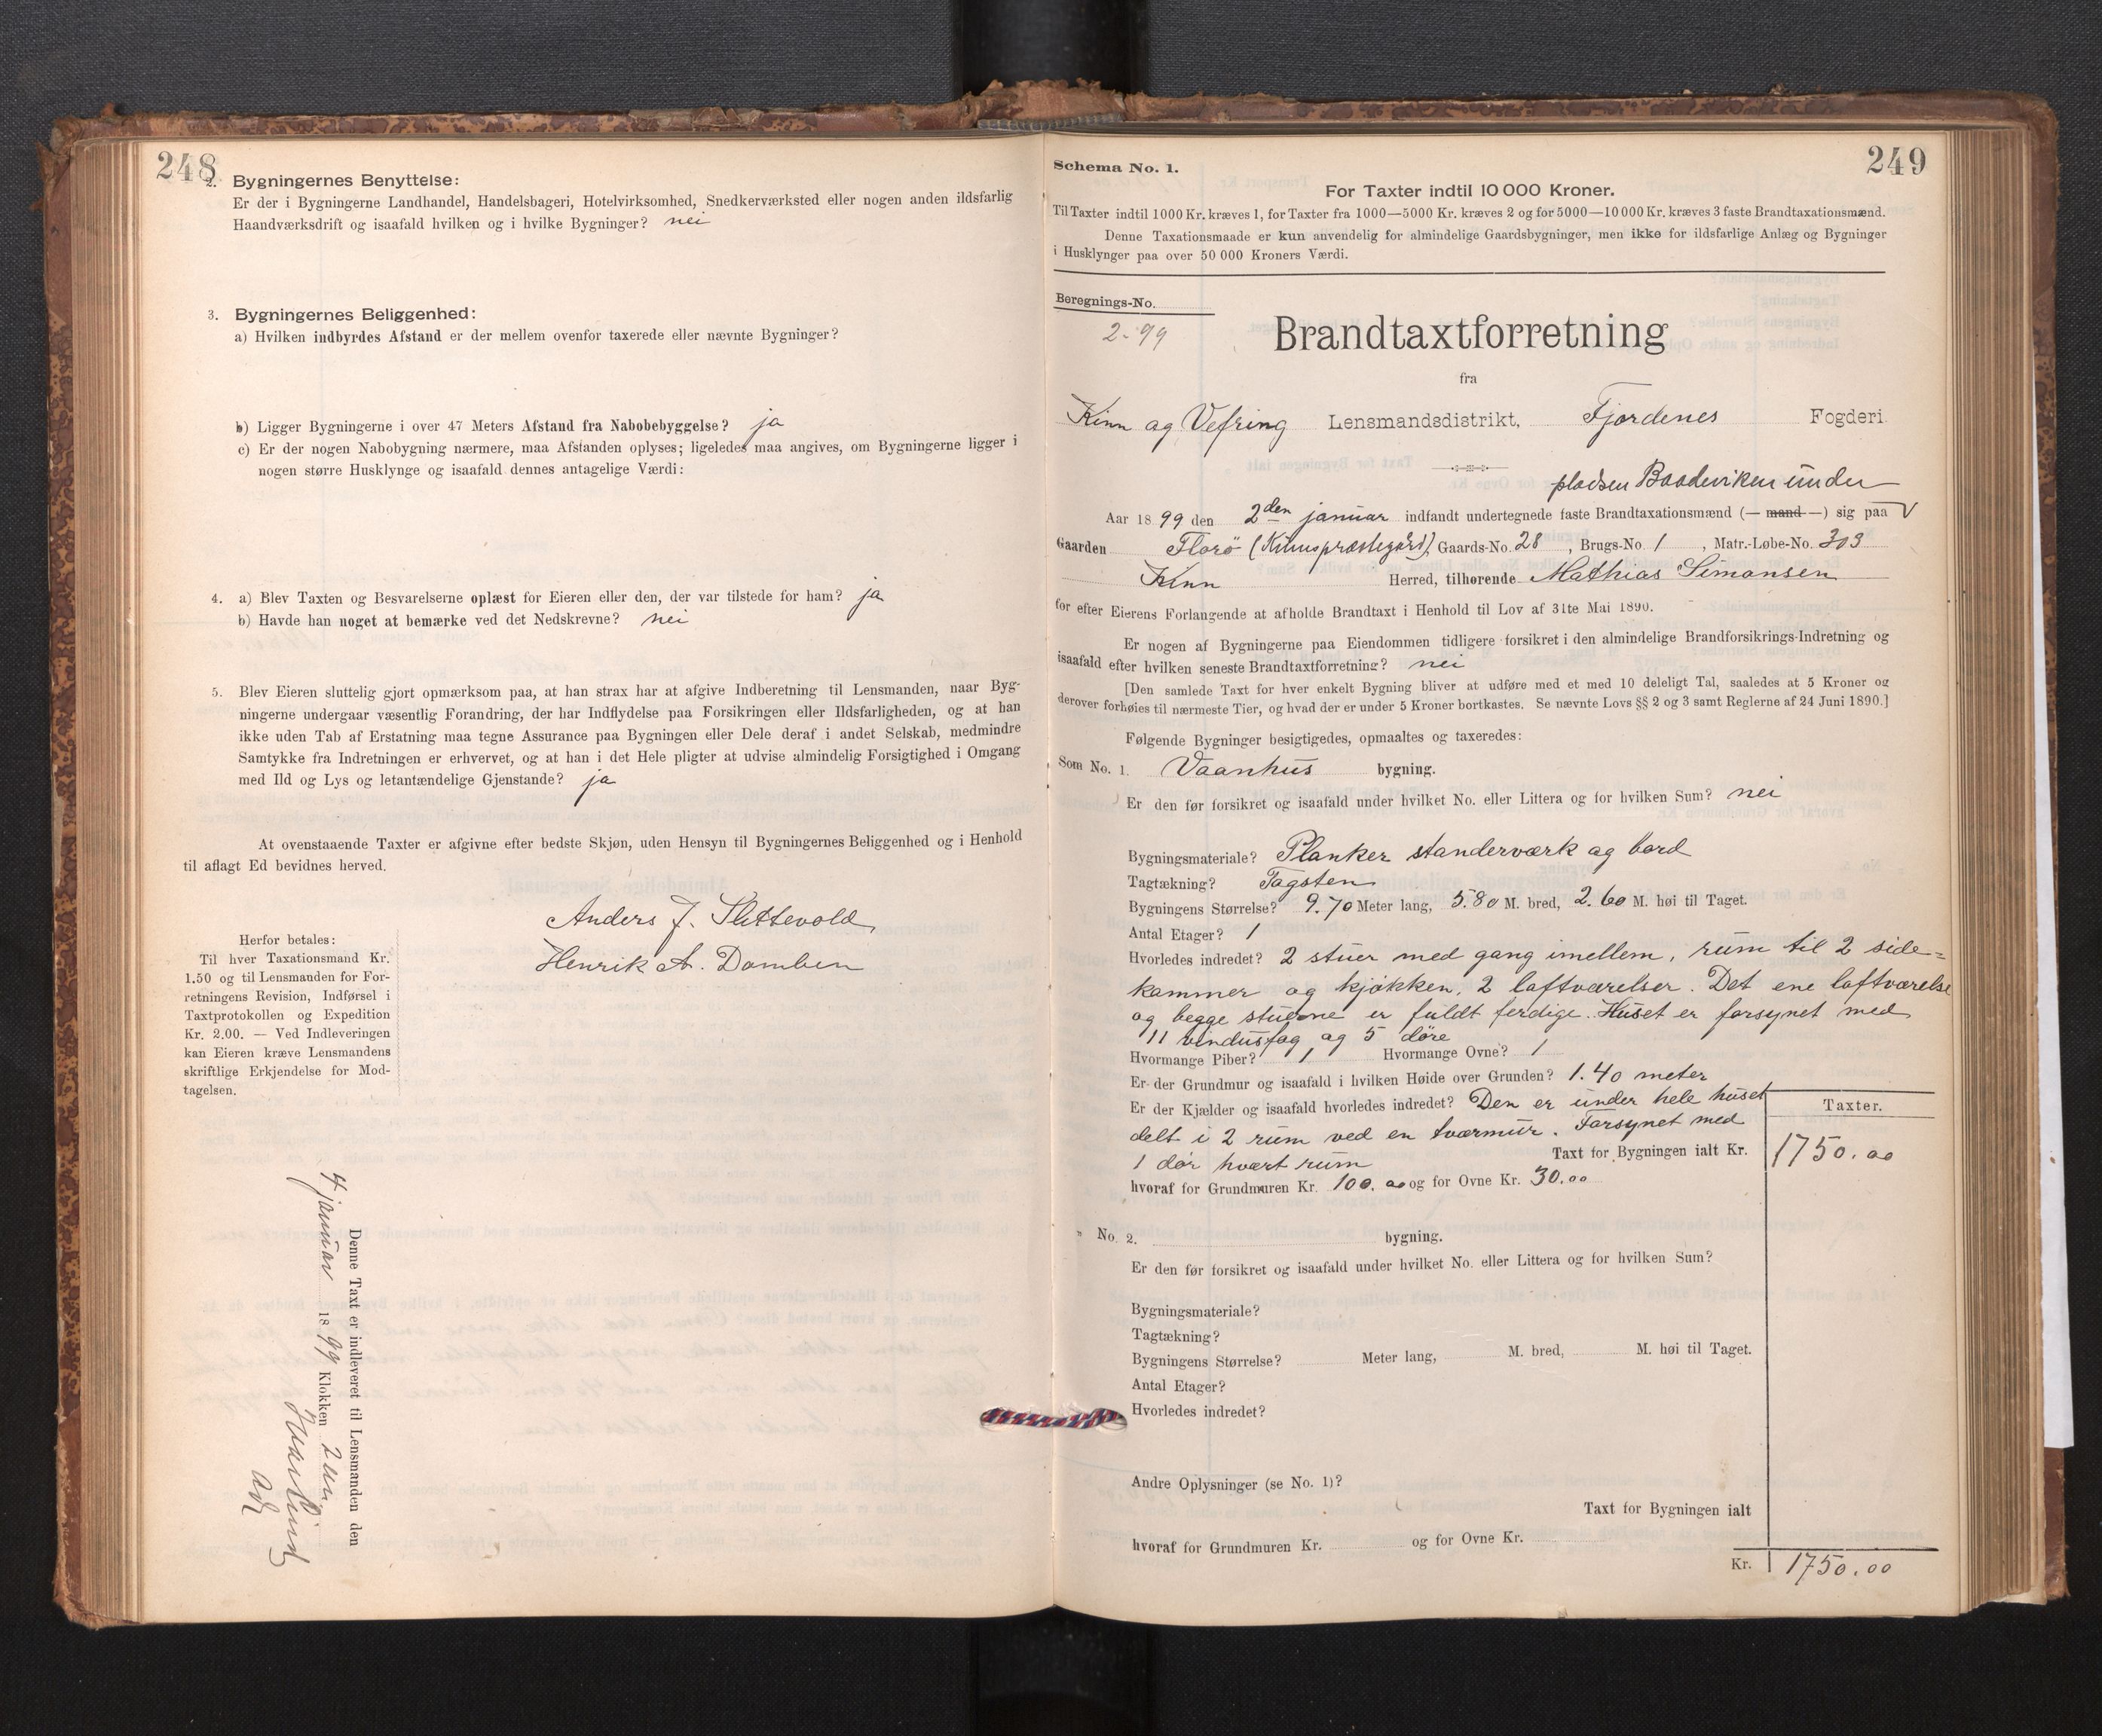 248
2. Bygningernes Benyttelse:
Er der i Bygningerne Landhandel, Handelsbageri, Hotelvirksomhed, Snedkerværksted eller nogen anden ildsfarlig
Haandværksdrift og isaafald hvilken og i hvilke Bygninger? nei
3. Bygningernes Beliggenhed:
a) Hvilken indbyrdes Afstand er der mellem ovenfor taxerede eller nævnte Bygninger?
b) Ligger Bygningerne i over 47 Meters Afstand fra Nabobebyggelse? ja
c) Er der nogen Nabobygning nærmere, maa Afstanden oplyses; ligeledes maa angives, om Bygningerne ligger i
nogen større Husklynge og isaafald dennes antagelige Værdi:
4. a) Blev Taxten og Besvarelserne oplæst for Eieren eller den, der var tilstede for ham? ja
b) Havde han noget at bemærke ved det Nedskrevne? nei
5. Blev Eieren sluttelig gjort opmærksom paa, at han strax har at afgive Indberetning til Lensmanden, naar Byg-
ningerne undergaar væsentlig Forandring, der har Indflydelse paa Forsikringen eller Ildsfarligheden, og at han
ikke uden Tab af Erstatning maa tegne Assurance paa Bygningen eller Dele deraf i andet Selskab, medmindre
Samtykke fra Indretningen er erhvervet, og at han i det Hele pligter at udvise almindelig Forsigtighed i Omgang
med Ild og Lys og letantændelige Gjenstande? ja
At ovenstaaende Taxter er afgivne efter bedste Skjøn, uden Hensyn til Bygningernes Beliggenhed og i Henhold
til aflagt Ed bevidnes herved.
Anders J. Slettevold
Henrik A. Domben
Herfor betales:
Til hver Taxationsmand Kr.
1.50 og til Lensmanden for For-
retningens Revision, Indførsel i
Taxtprotokollen og Expedition
Kr. 2.00. — Ved Indleveringen
kan Eieren kræve Lensmandens
skriftlige Erkjendelse for Mod-
tagelsen.
Denne Taxt er indleveret til Lensmanden den
4 januar 1899 Klokken 2 um
249
Schema No. 1.
For Taxter indtil 10 000 Kroner.
Til Taxter indtil 1000 Kr. kræves 1, for Taxter fra 1000—5000 Kr. kræves 2 og for 5000—10 000 Kr. kræves 3 faste Brandtaxationsmænd.
Denne Taxationsmaade er kun anvendelig for almindelige Gaardsbygninger, men ikke for ildsfarlige Anlæg og Bygninger
i Husklynger paa over 50 000 Kroners Værdi.
Beregnings-No.
2-99
Brandtaxtforretning
fra
Kinn og Vefring Lensmandsdistrikt, Fjordenes Fogderi
pladsen Baadeviken under
Aar 1899 den 2den januar indfandt undertegnede faste Brandtaxationsmænd (— mand —) sig paa V
Gaarden Florø (Kinnspræstegård), Gaards-No. 28, Brugs-No. 1, Matr.-Løbe-No. 303
Kinn Herred, tilhørende Mathias Simonsen
for efter Eierens Forlangende at afholde Brandtaxt i Henhold til Lov af 31te Mai 1890.
Er nogen af Bygningerne paa Eiendommen tidligere forsikret i den almindelige Brandforsikrings-Indretning og
isaafald efter hvilken seneste Brandtaxtforretning? nei
[Den samlede Taxt for hver enkelt Bygning bliver at udføre med et med 10 deleligt Tal, saaledes at 5 Kroner og
derover forhøies til nærmeste Tier, og hvad der er under 5 Kroner bortkastes. Se nævnte Lovs §§ 2 og 3 samt Reglerne af 24 Juni 1890.]
Følgende Bygninger besigtigedes, opmaaltes og taxeredes:
Som No. 1. Vaanhus bygning.
Er den før forsikret og isaafald under hvilket No. eller Littera og for hvilken Sum? nei
Bygningsmateriale? Planker standerværk og bord
Tagtækning? Tagsten
Bygningens Størrelse? 9.70 Meter lang, 5.80 M. bred, 2.60 M. høi til Taget.
Antal Etager? 1
Hvorledes indredet? 2 stuer med gang imellem, rum til 2 side=
kammer og kjøkken, 2 loftværelser. Det ene loftværelse
og begge stuerne er fuldt ferdige. Huset er forsynet med
11 vindusfag og 5 døre
Hvormange Piber? 1 Hvormange Ovne? 1
Er der Grundmur og isaafald i hvilken Høide over Grunden? 1.40 meter
Er der Kjælder og isaafald hvorledes indredet? Den er under hele huset
delt i 2 rum ved en tværmur. Forsynet med
1 dør hvært rum
Taxter.
Taxt for Bygningen ialt Kr. 1750.00
hvoraf for Grundmuren Kr. 100.00 og for Ovne Kr. 30.00
" No. 2. bygning.
Er den før forsikret og isaafald under hvilket No. eller Littera og for hvilken Sum?
Bygningsmateriale?
Tagtækning?
Bygningens Størrelse? Meter lang, M. bred, M. høi til Taget.
Antal Etager?
Hvorledes indredet?
Andre Oplysninger (se No. 1)?
Taxt for Bygningen ialt
hvoraf for Grundmuren Kr. og for Ovne Kr.
Kr. 1750.00